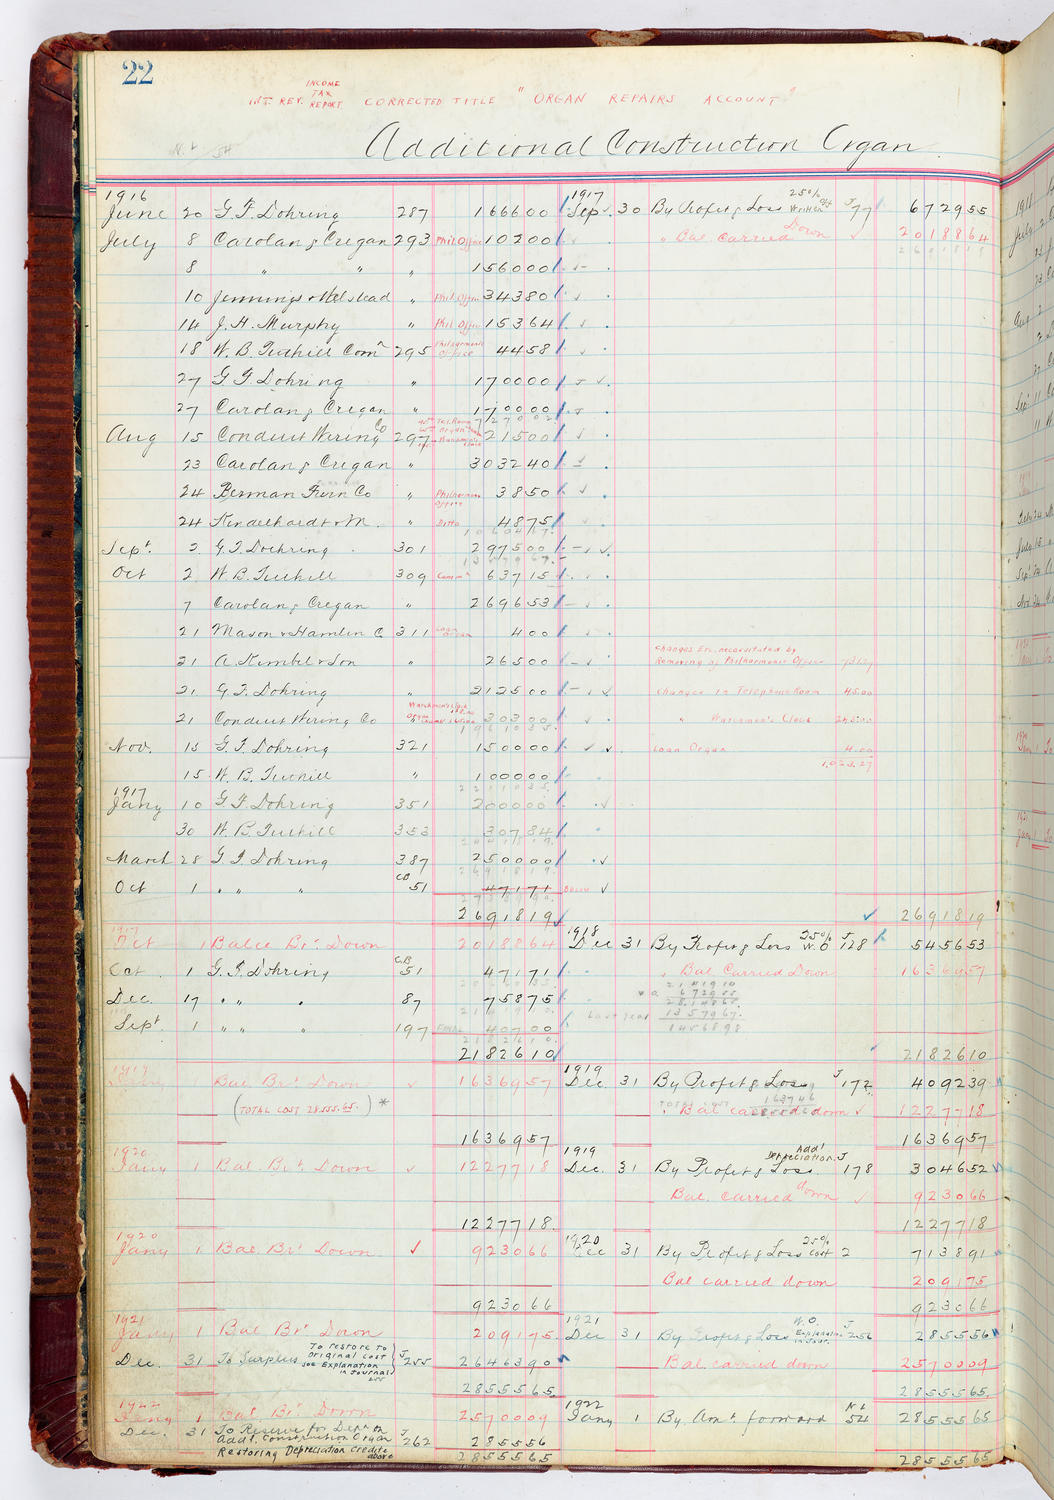 22
INCOME
TAX
1ST. REV. REPORT CORRECTED TITLE "ORGAN REPAIRS ACCOUNT"
Additional Construction Organ
1916
June 20 G. F. Dohring 287 1666 00
July 8 Carolan & Cregan 293 Phil Office 102 00
8 " " " 1560 00
10 Jennings & Welstead " Phil. Office 343 80
14 J. H. Murphy " Phil Office 153 64
18 W. B. Tuthill Comn 295 Philharmonic Office 44 58
27 G F Dohring " 1700 00
27 Carolan & Cregan " 
Aug 15 Conduit Wiring Co 297 215 00
23 Carolan & Cregan " 3032 40
24 Berman Furn Co " Philharmonic Office 38 50
24 Kindelhardt & M. " Ditto 48 75
Sept. 2 G. F. Doehring 301 2975 00
Oct 2 W. B. Tuthill 309 Comm 637 15
7 Carolan & Cregan " 2696 53
21 Mason & Hamlin C 311 Loan Organ 4 00
21 A. Kimbel & Son " 265 00
21. G. F. Dohring " 2125 00
21 Conduit Wiring Co " 303 00
Nov. 15 G. F. Dohring 321 1500 00
15 W. B. Tuthill " 1000 00
1917
Jany 10 G F Dohring 351 2000 00
30 W. B. Tuthill 353 307 84
March 28 G. F. Dohring 387 2500 00
Oct 1 " " " CB 51 471 71 Below
26918 19
1917
Oct 1 Balce Brt. Down 20188 64
Oct. 1 G. F. Dohring C.B. 51 471 71
Dec. 17 " " " 87 758 75
Sept. 1 " " " 197 FINAL 407 00
21826 10
1919
Jany 1 Bal. Brt. Down 16369 57
(TOTAL COST 28555.65.) *
16369 57
1920
Jany 1 Bal. Brt. Down 12277 18
12277 18.
1920
Jany 1 Bal. Brt. Down 9230 66
9230 66
1921
Jany 1 Bal Brt. Down 2091 75
Dec. 31 To Surplus To restore to Original Cost see Explanation in Journal 255 J 255 26463 90
28555 65
1922
Jany 1 Bal. Brt. Down 25700 09
Dec. 31 To Reserve for Depn on Addl. Construction Organ J 262 2855 56
Restoring Depreciation Credite above 28555 65
1917
Sept. 30 By Profit & Loss 25% Written Off J 77 6729 55
" Bal. Carried Down 20188 64
Changes Etc. necessitated by
Removing of Philharmonic Office 731.27
Changes in Telephone Room 45.00
" Watchmen's Clock 243.00
Loan Organ 4.00
1,023.27
26918 19
1918
Dec 31 By Profit & Loss 25% W.O J 128 5456 53
" Bal Carried Down 16369 57
21419 10
6729 55
28148 65
Last year 13579 67
14568 98
21826 10
1919
Dec. 31 By Profit & Loss J 172 4092 39
" Bal carried down 12277 18
16369 57
1919
Dec. 31 By Profit & Loss Addl Depreciation J 178 3046 52
Bal. carried down 9230 66
12277 18
1920
Dec 31 By Profit & Loss 25% Cost 2 7138 91
Bal carried down 2091 75
9230 66
1921
Dec 31 By Profit & Loss W.O. Explanation in Jour. J 256 2855 56
Bal. carried down 25700 09
28555 65.
1922
Jany 1 By Amt forward N L 54 28555 65
28555 65